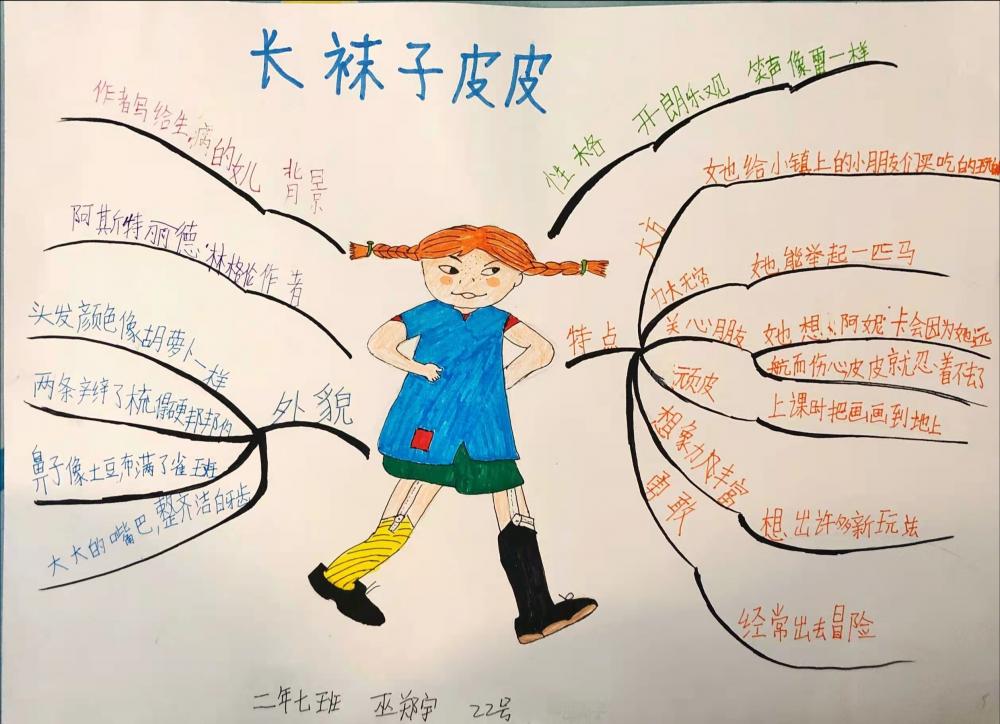 长袜子皮皮
作者写给生病的女儿 背景
阿斯特丽德·林格伦 作者
头发颜色像胡萝卜一样
两条辫子梳得硬邦邦的
鼻子像土豆,布满了雀斑
大大的嘴巴,整齐洁白牙齿
外貌
性格 开朗乐观 笑声像雷一样
特点
大方 她给小镇上的小朋友们买吃的
力大无穷 她能举起一匹马
关心朋友 她想,阿妮卡会因为她远
航而伤心皮皮就忍着不去了
顽皮 上课时把画画到地上
想象力丰富 想出许多新玩法
勇敢 经常出去冒险
二年七班 巫郑宇 22号